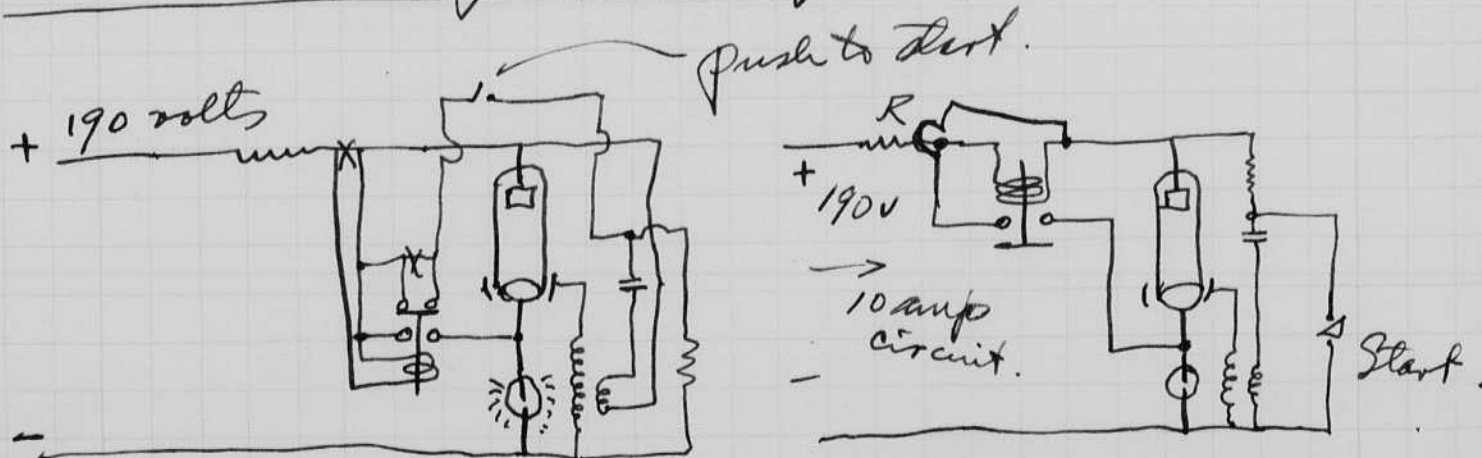 push to start.
+ 190 volts
R
+
190 v
→
10 amp
circuit.
Start.
-
-